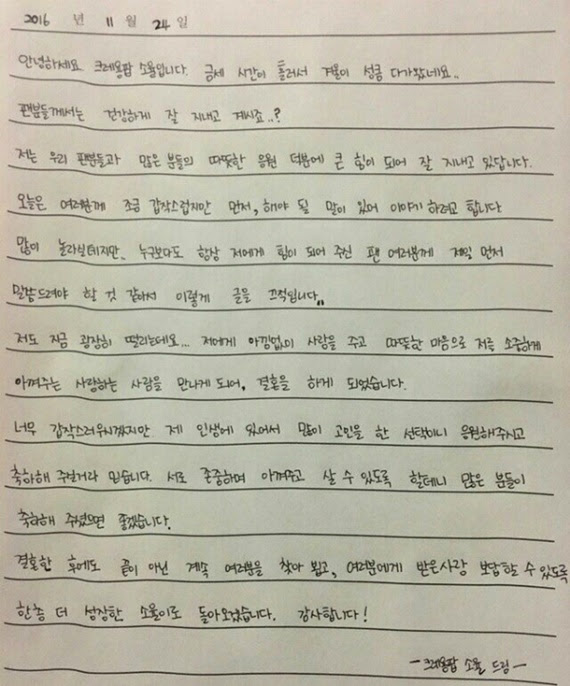 2016 년 11 월 24 일
안녕하세요 크레용팝 소율입니다. 금세 시간이 흘러서 겨울이 성큼 다가왔네요..
팬분들께서는 건강하게 잘 지내고 계시죠..?
저는 우리 팬분들과 많은 분들의 따뜻한 응원 덕분에 큰 힘이 되어 잘 지내고 있답니다.
오늘은 여러분께 조금 갑작스럽지만 먼저, 해야 될 말이 있어 이야기 하려고 합니다
많이 놀라실테지만, 누구보다도 항상 저에게 힘이 되어 주신 팬 여러분께 제일 먼저
말씀드려야 할 것 같아서 이렇게 글을 끄적입니다..
저도 지금 굉장히 떨리는데요... 저에게 아낌없이 사랑을 주고 따뜻한 마음으로 저를 소중하게
아껴주는 사랑하는 사람을 만나게 되어, 결혼을 하게 되었습니다.
너무 갑작스러우시겠지만 제 인생에 있어서 많이 고민을 한 선택이니 응원해주시고
축하해 주실거라 믿습니다. 서로 존중하며 아껴주고 살 수 있도록 할테니 많은 분들이
축하해 주셨으면 좋겠습니다.
결혼한 후에도 끝이 아닌 계속 여러분을 찾아 뵙고, 여러분에게 받은사랑 보답할 수 있도록
한층 더 성장한 소율이로 돌아오겠습니다. 감사합니다!
- 크레용팝 소율 드림 -